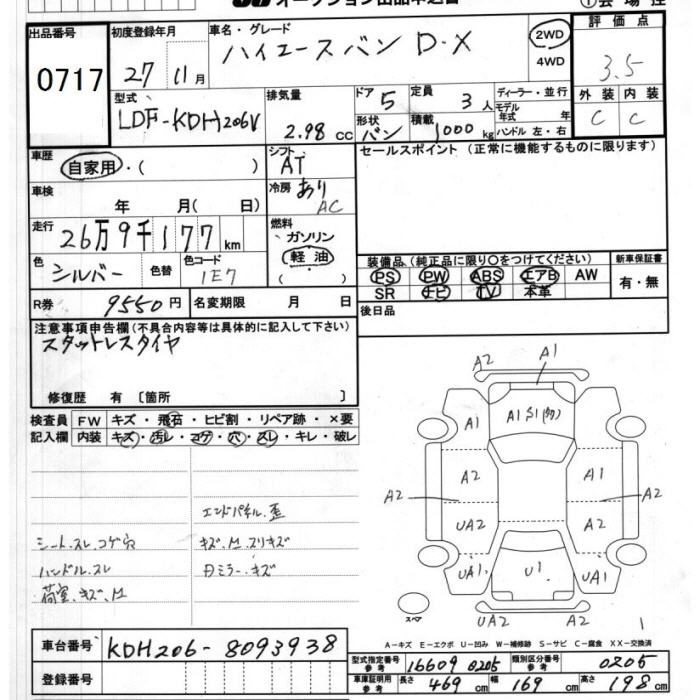 オークション出品申込書
①会場控
出品番号
0717
初度登録年月
27 11月
車名・グレード
ハイエースバン D・X
2WD
4WD
評価点
3.5
外装 内装
C C
型式
LDF-KDH206V
排気量
2.98 cc
ドア 5
形状 バン
定員 3人
積載 1000 kg
ディーラー・並行
モデル年式 年
ハンドル 左・右
車歴
自家用・( )
シフト
AT
セールスポイント(正常に機能するものに限ります)
車検
年 月( 日)
冷房 あり
AC
走行
26万9千177 km
燃料
ガソリン
軽油
( )
色 シルバー 色替
色コード
1E7
装備品(純正品に限り○をつけてください)
PS PW ABS エアB AW
SR ナビ TV 本革
新車保証書
有・無
R券 9550円
名変期限 月 日
後日品
注意事項申告欄(不具合内容等は具体的に記入して下さい)
スタットレスタイヤ
修復歴 有 [箇所 ]
検査員記入欄
FW キズ・飛石・ヒビ割・リペア跡・×要
内装 キズ・汚レ・コゲ・穴・スレ・キレ・破レ
エンドパネル.歪
シート.スレ.コゲ穴
キズ.M.スリキズ
ハンドル.スレ
Dミラー.キズ
荷室.キズ.M
A2 A1
A1 A1 S1(多)
A2 A1
A2 A2
UA2 A2
UA1 U1 UA1
UA2 A2
スペア
1
A−キズ E−エクボ U−凹み W−補修跡 S−サビ C−腐食 XX−交換済
車台番号 KDH206-8093938
登録番号
型式指定番号 参考 16609 0205
類別区分番号 参考 0205
車庫証明用 参考
長さ 469 cm
幅 169 cm
高さ 198 cm